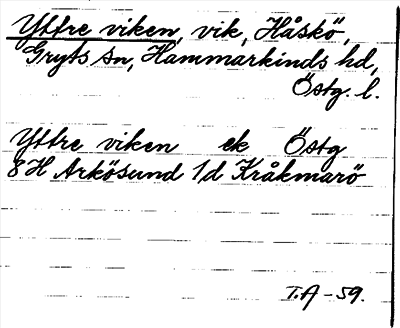 Yttre viken, vik, Håskö,
Gryts sn, Hammarkinds hd,
Östg. l.
Yttre viken ek Östg
8H Arkösund 1d Kråkmarö
T.A-59.